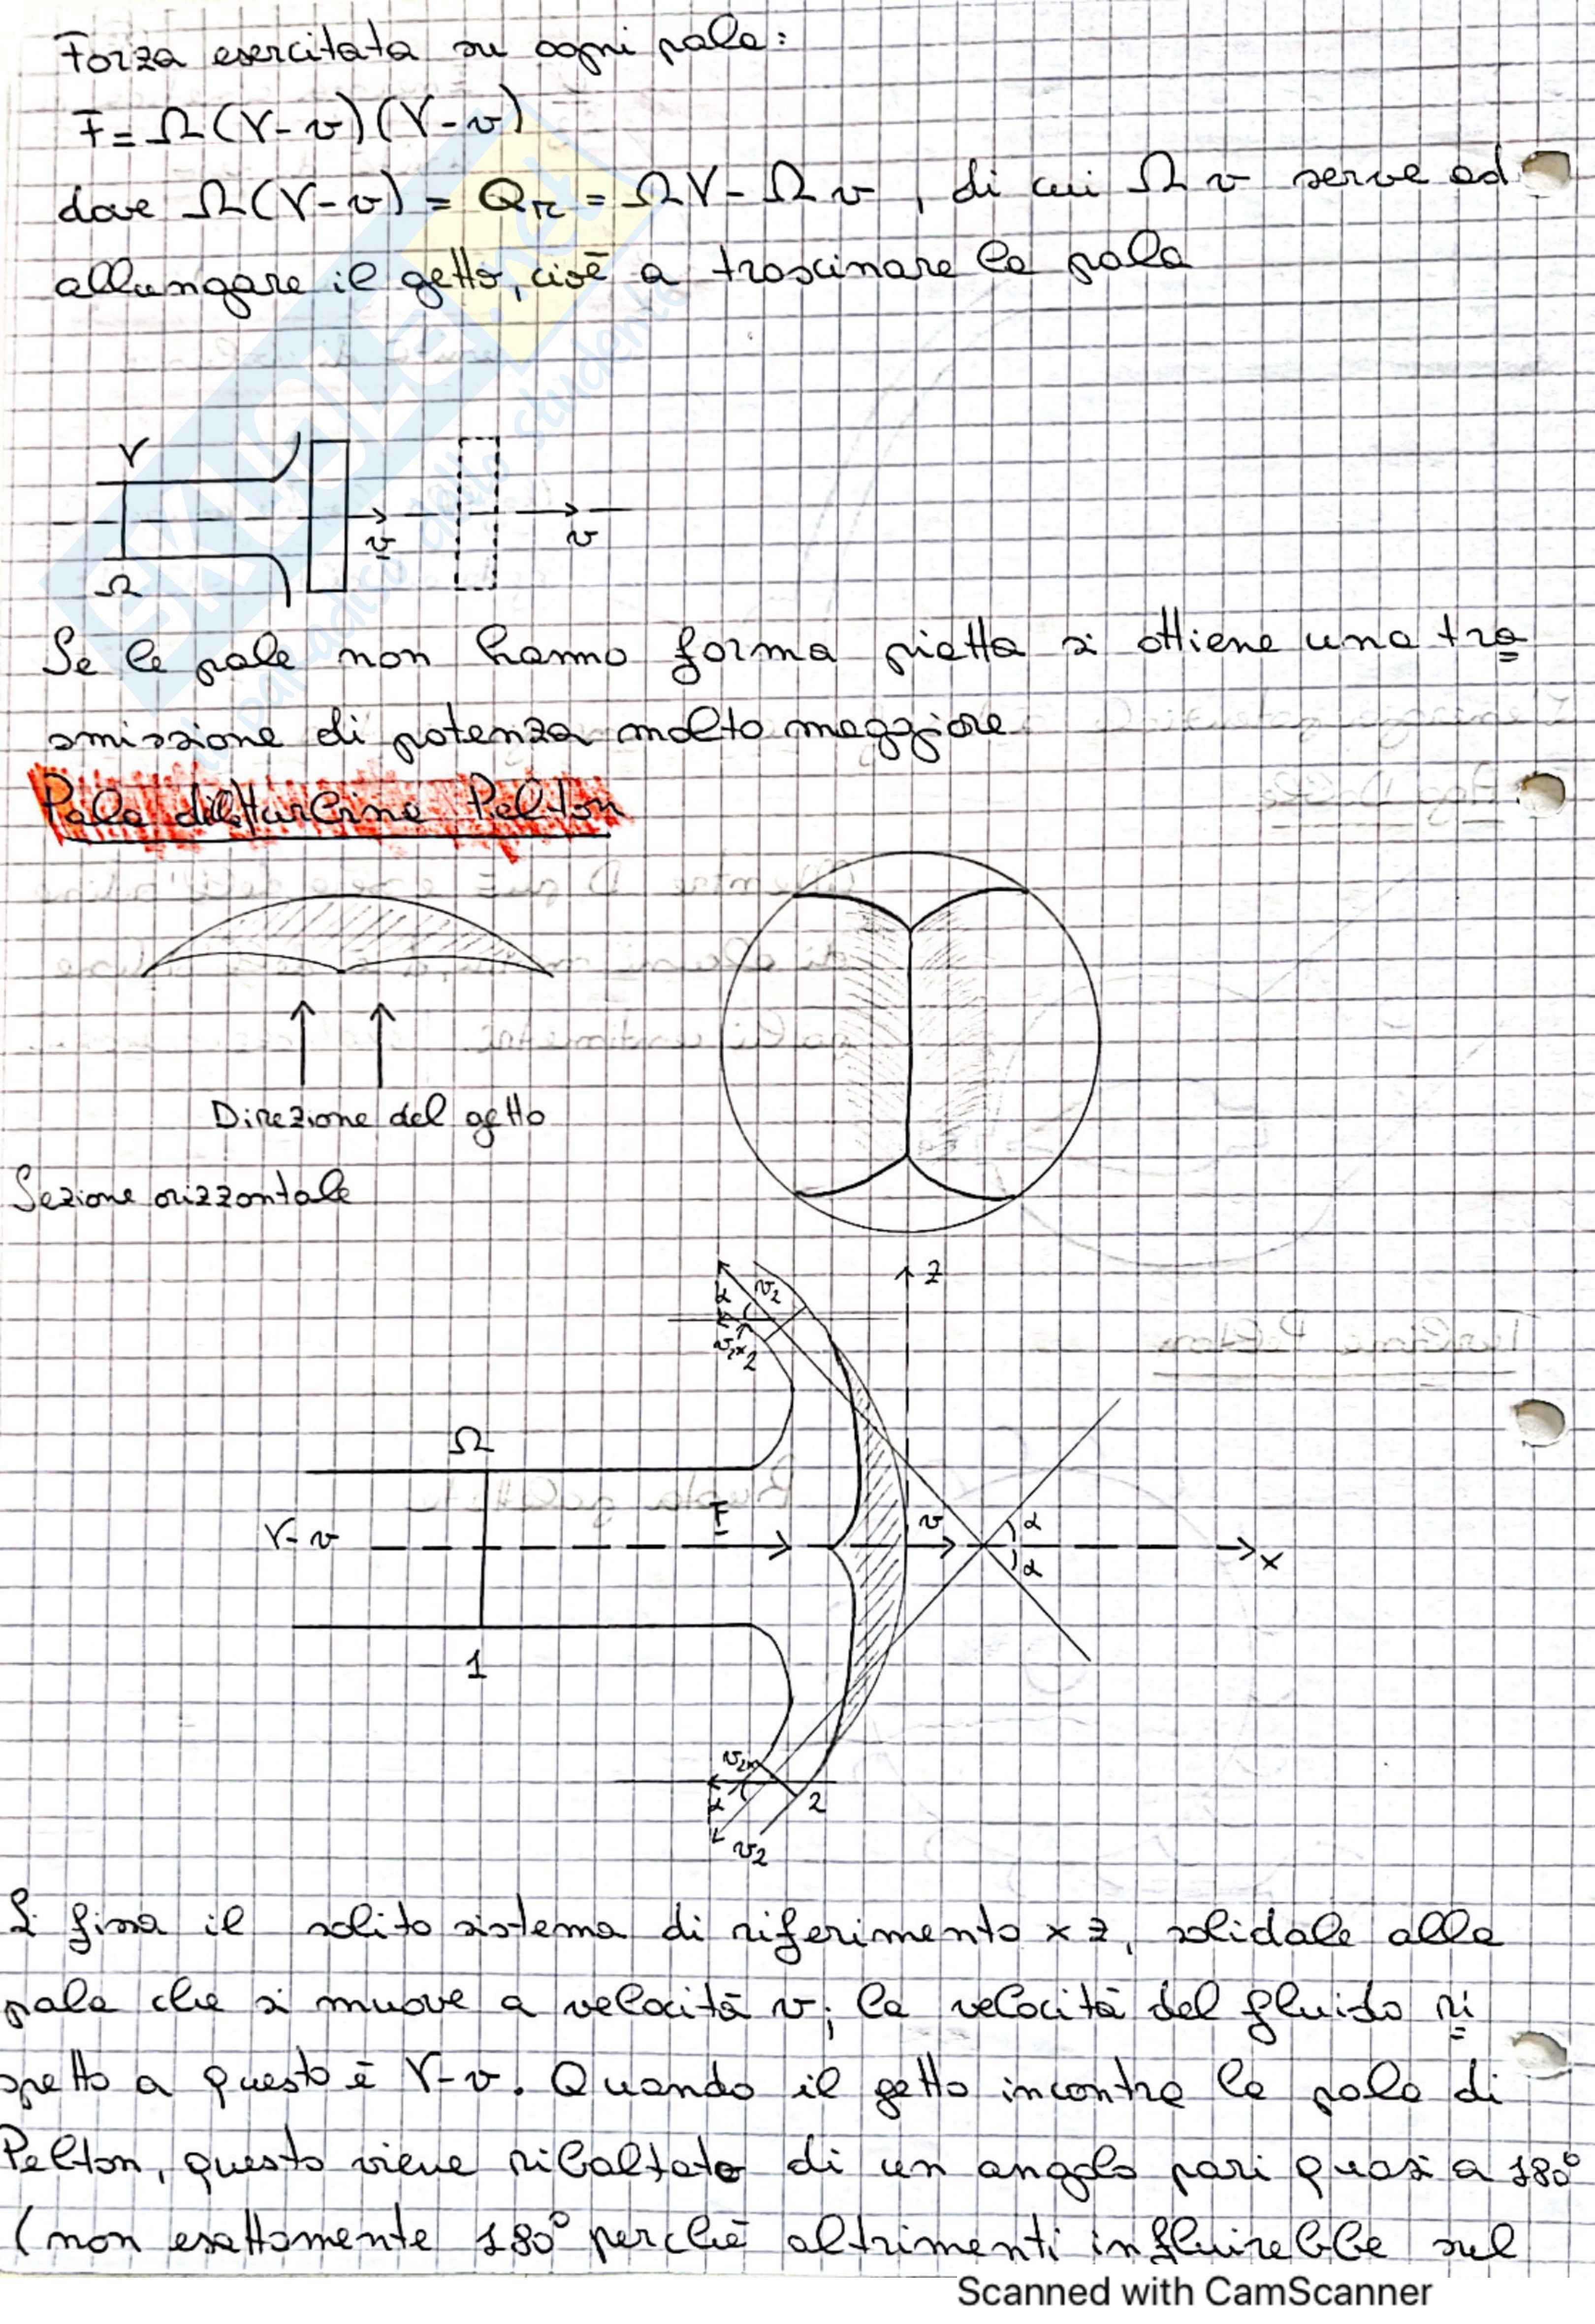 Forza esercitata su ogni pala:
F = Ω(V-v)(V-v)
dove Ω(V-v) = Qr = ΩV - Ωv, di cui Ωv serve ad
allungare il getto, cioè a trascinare la pala
V
v
v
Ω
Se le pale non hanno forma piatta si ottiene una tra
smissione di potenza molto maggiore.
Pala della turbina Pelton
Direzione del getto
Sezione orizzontale
z
α
v2
v2x
2
Ω
V-v
F
v
α
α
x
1
v2x
α
2
v2
Si fissa il solito sistema di riferimento x z, solidale alla
pala che si muove a velocità v; la velocità del fluido ri
spetto a questo è V-v. Quando il getto incontra la pala di
Pelton, questo viene ribaltato di un angolo pari quasi a 180°
(non esattamente 180° perchè altrimenti influirebbe sul
Scanned with CamScanner
SKUOLA.net